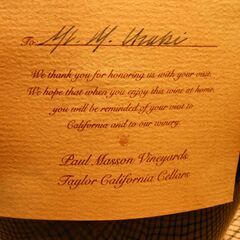 To Mr. M. Uzuki
We thank you for honoring us with your visit.
We hope that when you enjoy this wine at home,
you will be reminded of your visit to
California and to our winery.
Paul Masson Vineyards
Taylor California Cellars